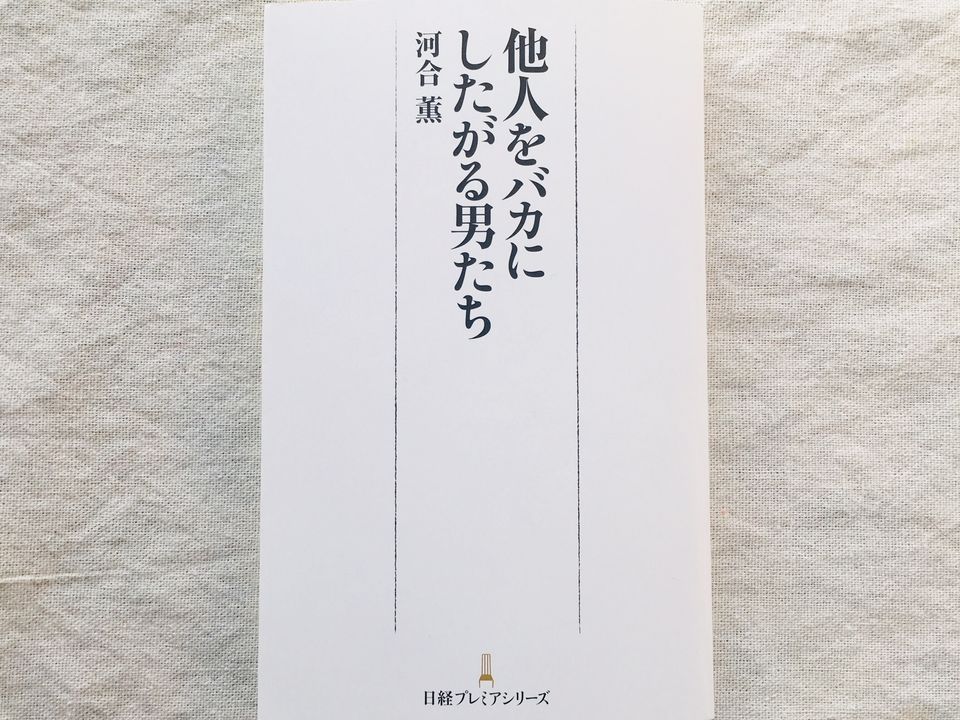 他人をバカに
したがる男たち
河合 薫
日経プレミアシリーズ